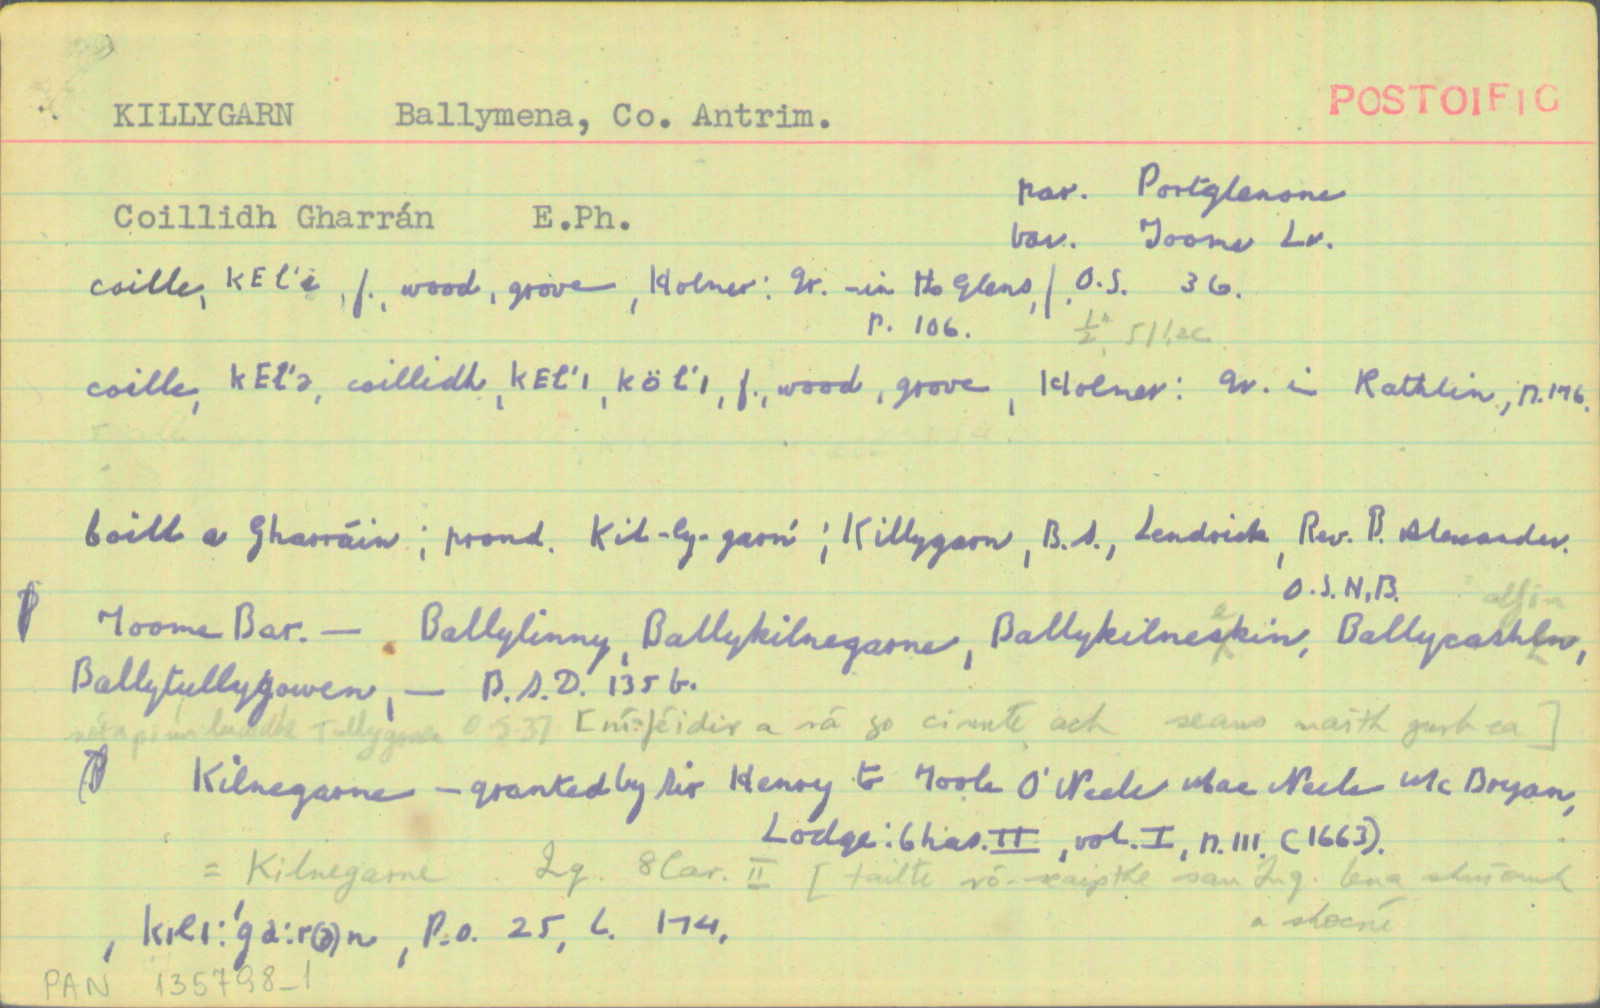 KILLYGARN Ballymena, Co. Antrim. POSTOIFIG
par. Portglenone
Coillidh Gharrán E.Ph.
bar. Toome Lr.
coille, kEl'ə, f., wood, grove, Holmer: Ir. in the Glens, O.S. 36.
p. 106. ½"
coille, kEl'ə, coillidh, kEl'ı, köl'ı, f., wood, grove, Holmer: Ir. in Rathlin, p.176.
Coill a Gharráin; prond. Kil-ly-garn'; Killygarn, B.S., Lendrick, Rev. P. Alexander.
O.S.N.B.
Toome Bar. — Ballylinny, Ballykilnegarne, Ballykilneskin, Ballycashln,
Ballytullygowen, — B.S.D. 135 b.
Tullygowen O.S.37 [ní féidir a rá go cinnte ach seans maith gurb ea]
Kilnegarne — granted by Sir Henry to Toole O'Neele Mac Neele Mc Bryan,
Lodge: Chas. II, vol. I, p. 111. (1663).
= Kilnegarne Inq. 8 Car. II [tailte san Inq.
, kılı:'ga:r(ə)n, P.O. 25, L. 174.
PAN 135798_1